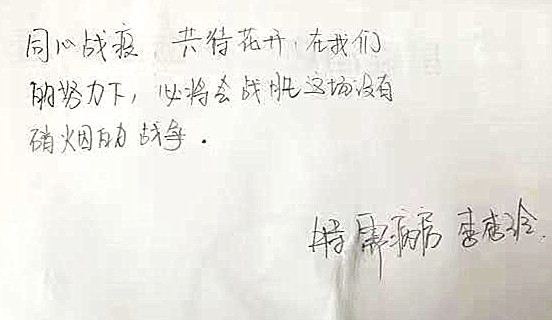 同心战疫,共待花开,在我们
的努力下,必将会战胜这场没有
硝烟的战争.
病房 李